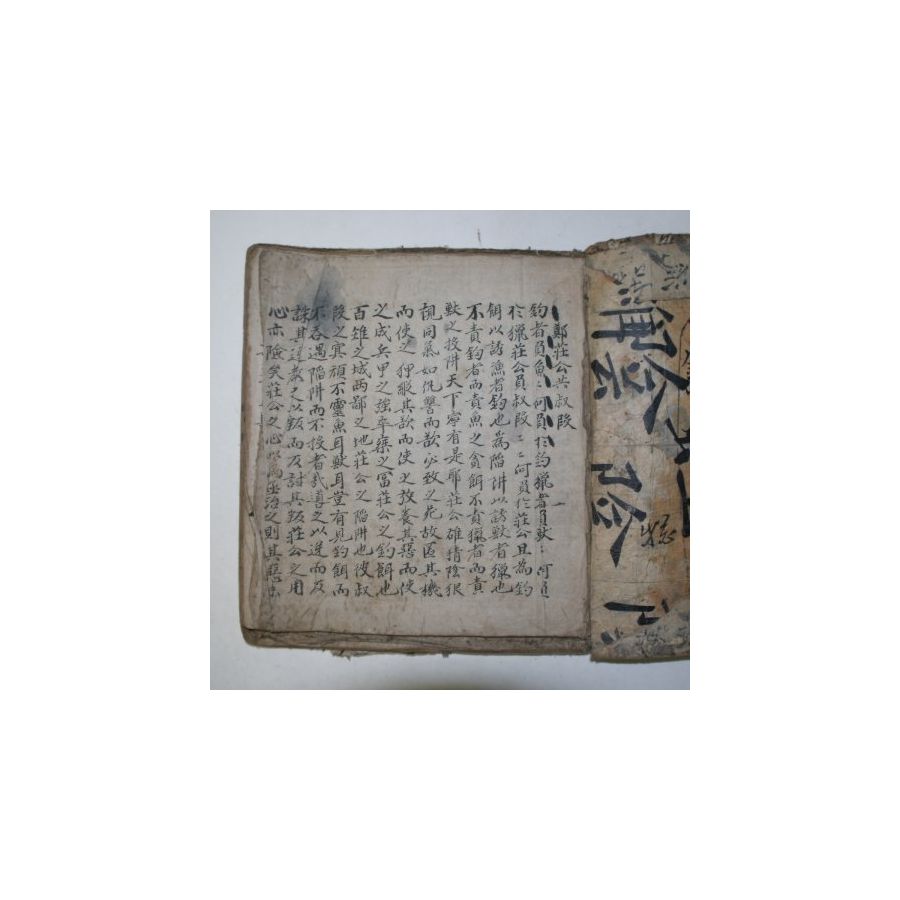 鄭莊公共叔段
釣者負魚魚何負於釣獵者負獸獸何負
於獵莊公負叔段段何負於莊公且為鈎
餌以誘魚者釣也為陷阱以誘獸者獵也
不責釣者而責魚之貪餌不責獵者而責
獸之投阱天下寧有是耶莊公雄猜陰狠
視同氣如仇讐而欲必致之死故匿其機
而使之狎縱其欲而使之放養其惡而使
之成兵甲之強卒乘之富莊公之鈎餌也
百雉之城兩鄙之地莊公之陷阱也彼叔
段之冥頑不靈魚耳獸耳豈有見鈎餌而
不吞過陷阱而不投者哉導之以逆而反
誅其逆教之以叛而反討其叛莊公之用
心亦險矣莊公之心以為亟治之則其惡未